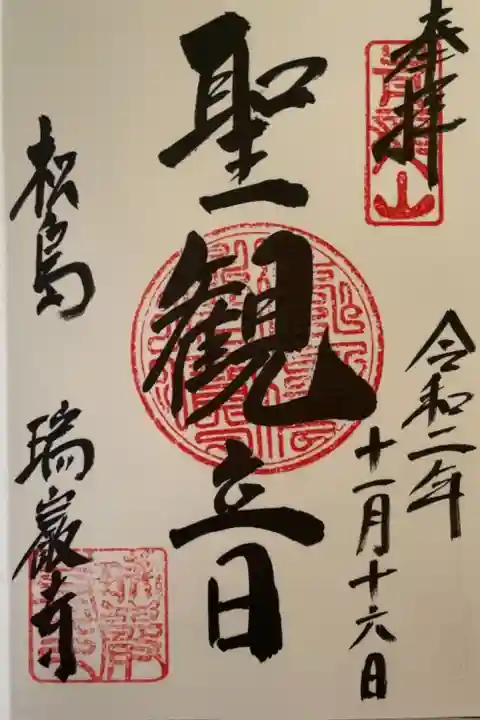 奉拝
青龍山
令和二年
十一月十六日
聖観音
松島 瑞巌寺